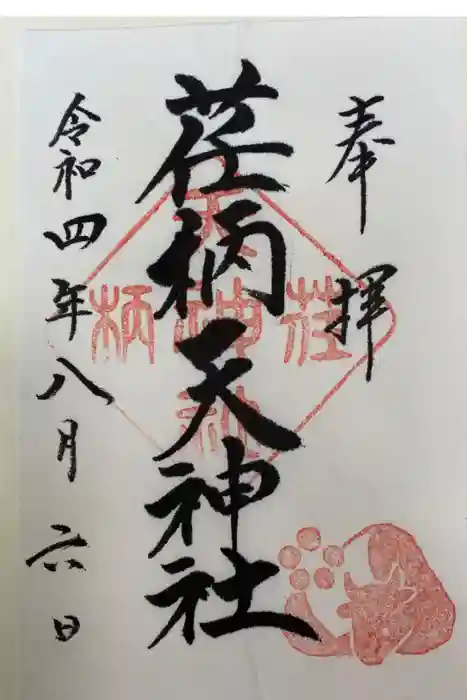 奉拝
荏柄天神社
令和四年八月六日
荏柄
天神社